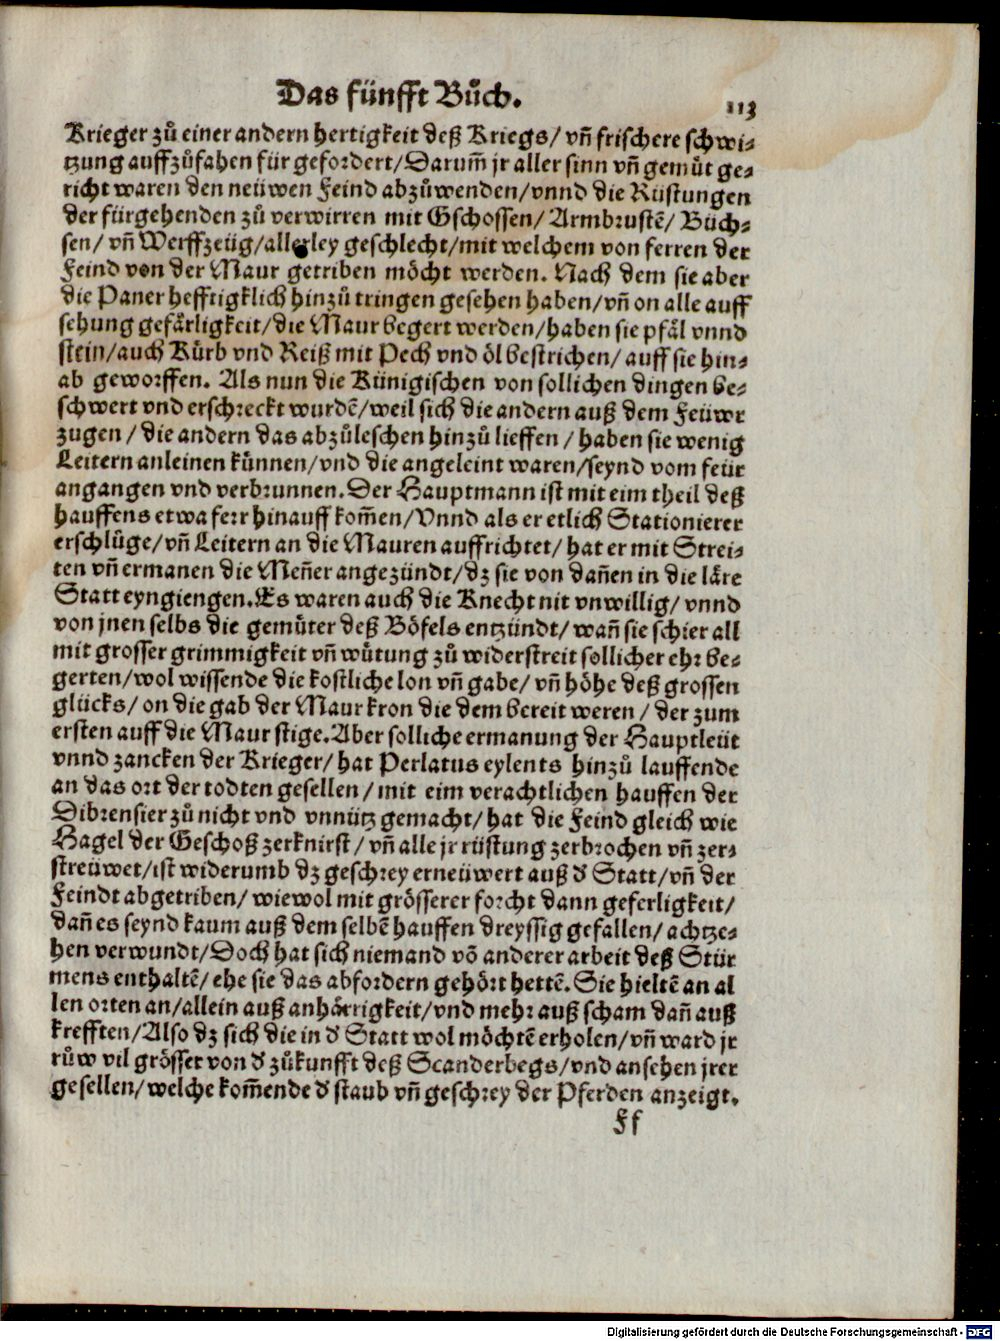 Das fünfft Bůch. 113
Krieger zů einer andern hertigkeit deß Kriegs/ vñ frischere schwi-
tzung auffzůfahen für gefordert/Darum̃ jr aller sinn vñ gemůt ge-
richt waren den neüwen Feind abzůwenden/vnnd die Rüstungen
der fürgehenden zů verwirren mit Gschossen/ Armbrustẽ/ Büch-
sen/ vñ Werffzeüg/allerley geschlecht/mit welchem von ferren der
Feind von der Maur getriben möcht werden. Nach dem sie aber
die Paner hefftigklich hinzů tringen gesehen haben/vñ on alle auff
sehung gefärligkeit/die Maur begert werden/haben sie pfäl vnnd
stein/auch Kürb vnd Reiß mit Pech vnd öl bestrichen/ auff sie hin-
ab geworffen. Als nun die Künigischen von sollichen dingen be-
schwert vnd erschreckt wurdẽ/weil sich die andern auß dem Feüwr
zugen / die andern das abzůleschen hinzů lieffen / haben sie wenig
Leitern anleinen künnen/vnd die angeleint waren/seynd vom feür
angangen vnd verbrunnen. Der Hauptmann ist mit eim theil deß
hauffens etwa ferr hinauff kom̃en/Vnnd als er etlich Stationierer
erschlüge/vñ Leitern an die Mauren auffrichtet/ hat er mit Strei-
ten vñ ermanen die Meñer angezündt/dz sie von dañen in die läre
Statt eyngiengen. Es waren auch die Knecht nit vnwillig/ vnnd
von jnen selbs die gemüter deß Böfels entzündt/ wañ sie schier all
mit grosser grimmigkeit vñ wůtung zů widerstreit sollicher ehr be-
gerten/wol wissende die kostliche lon vñ gabe/ vñ höhe deß grossen
glücks/ on die gab der Maur kron die dem bereit weren / der zum
ersten auff die Maur stige. Aber solliche ermanung der Hauptleüt
vnnd zancken der Krieger/ hat Perlatus eylents hinzů lauffende
an das ort der todten gesellen / mit eim verachtlichen hauffen der
Dibrensier zů nicht vnd vnnütz gemacht/ hat die Feind gleich wie
Hagel der Geschoß zerknirst / vñ alle jr rüstung zerbrochen vñ zer-
streüwet/ist widerumb dz geschrey erneüwert auß d' Statt/vñ der
Feindt abgetriben/ wiewol mit grösserer forcht dann geferligkeit/
dañ es seynd kaum auß dem selbẽ hauffen dreyssig gefallen/ achtze-
hen verwundt/Doch hat sich niemand võ anderer arbeit deß Stür
mens enthaltẽ/ ehe sie das abfordern gehört hettẽ. Sie hieltẽ an al
len orten an/allein auß anhärrigkeit/vnd mehr auß scham dañ auß
krefften/Also dz sich die in d' Statt wol möchtẽ erholen/vñ ward jr
růw vil grösser von d' zůkunfft deß Scanderbegs/vnd ansehen jrer
gesellen/welche kom̃ende d' staub vñ geschrey der Pferden anzeigt.
Ff
Digitalisierung gefördert durch die Deutsche Forschungsgemeinschaft - DFG